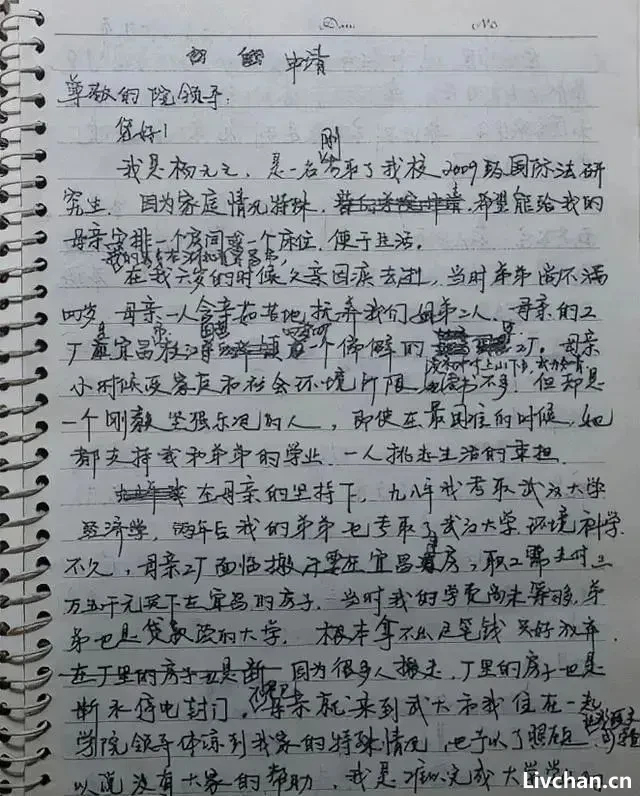 D.... No
申请
尊敬的院领导：
您好！
我是杨元元，是一名刚考取了我校2009级国际法研
究生。因为家庭情况特殊，希望能给我的
母亲安排一个房间或一个床位，便于生活。
在我六岁的时候父亲因病去逝，当时弟弟尚不满
四岁，母亲一人含辛茹苦地抚养我们姐弟二人。母亲的工
厂是宜昌市枝江 一个偏僻的 工厂。母亲
小时候受家庭和社会环境所限， 读书不多，但却是
一个刚毅坚强乐观的人，即使在最困难的时候，她
都支持我和弟弟的学业，一人挑起生活的重担。
在母亲的坚持下，九八年我考取武汉大学
经济学，两年后我的弟弟也考取了武汉大学环境科学
不久，母亲工厂面临搬 在宜昌 房，职工需支付三
万五千元买下在宜昌的房子。当时我的学费尚未筹够，弟
弟也是贷款读的大学。根本拿不出这笔钱只好放弃
在厂里的房子也是断 因为很多人搬走，厂里的房子也是
断水停电封门， 母亲就来到武大和我住在一起
学院领导体谅到我家的特殊情况，也予以了照顾，
以说没有大家的帮助，我是难以完成大学学
Livchan.cn